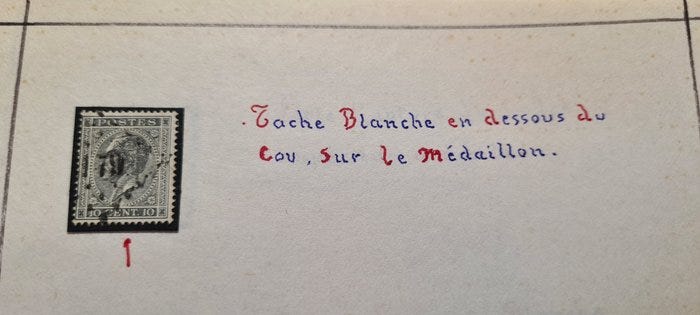 POSTES
10 CENT. 10
. Tache Blanche en dessous du
Cou, Sur Le Médaillon.